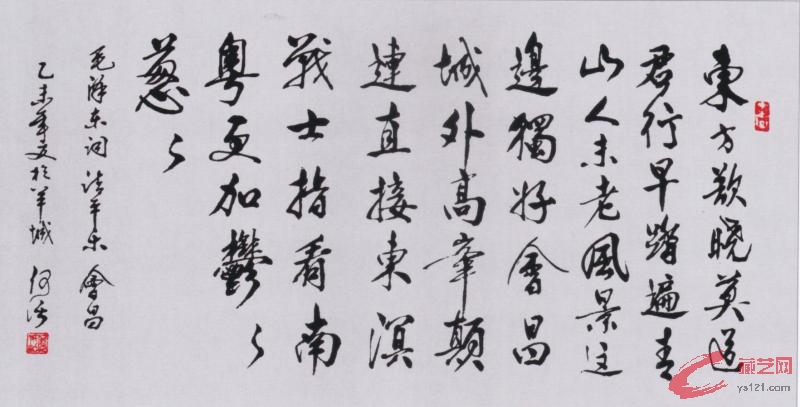 東方欲晓莫道
君行早踏遍青
山人未老風景这
邊獨好會昌
城外高峯顛
連直接東溟
戰士指看南
粵更加鬱〻
葱〻
毛泽东词清平乐 會昌
乙未年夏於羊城
藏艺网
ys121.com